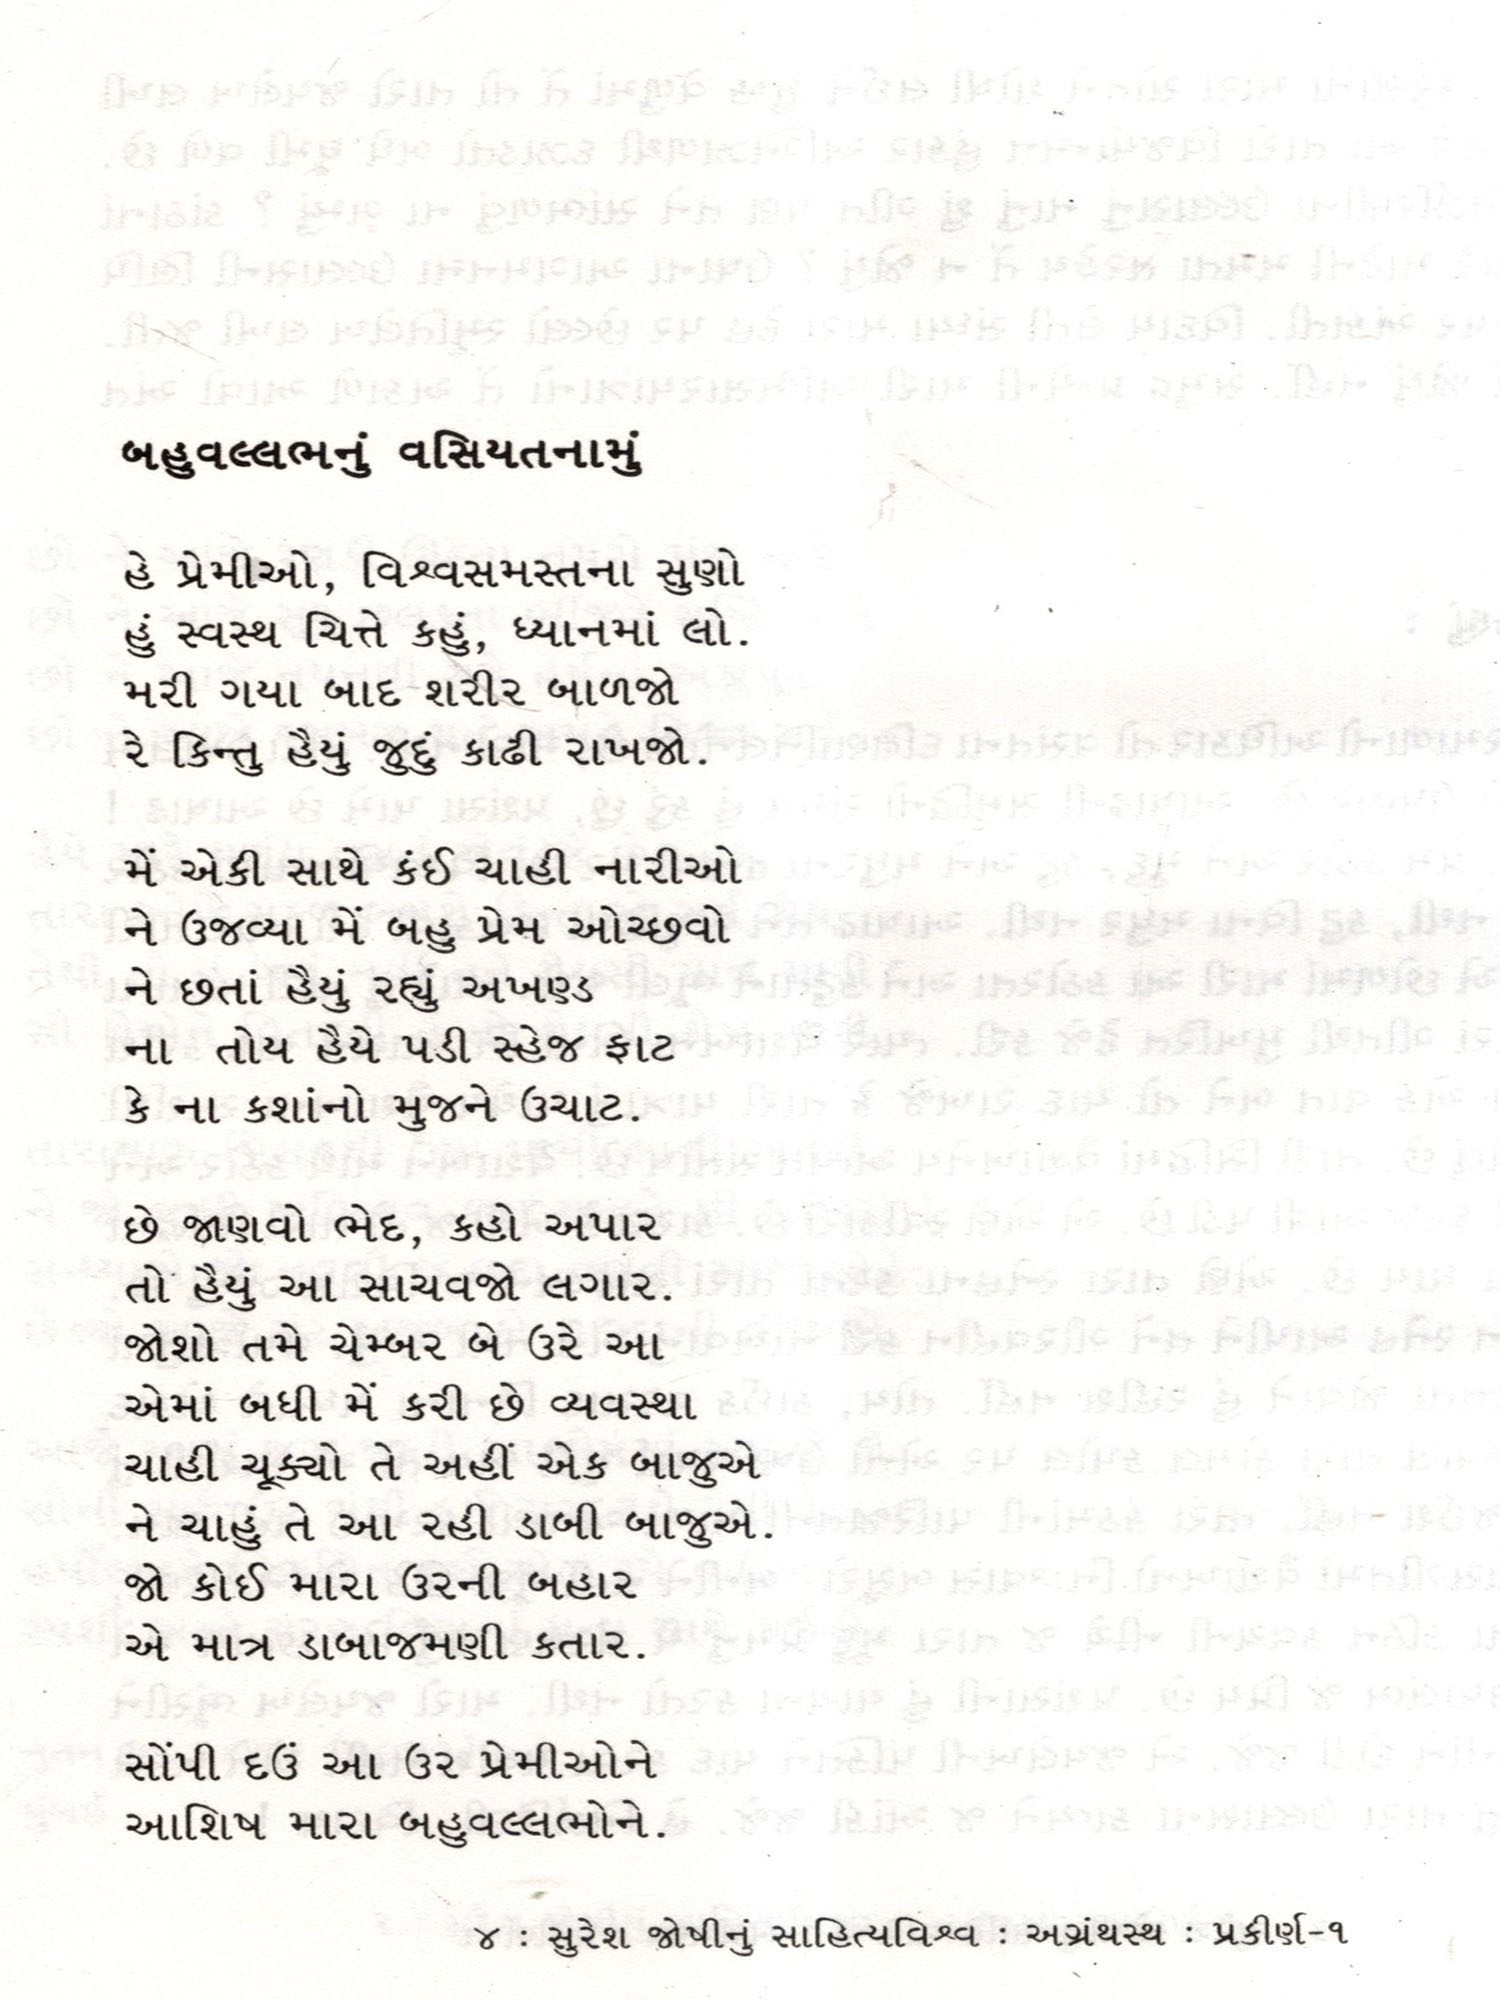 બહુવલ્લભનું વસિયતનામું
હે પ્રેમીઓ, વિશ્વસમસ્તના સુણો
હું સ્વસ્થ ચિત્તે કહું, ધ્યાનમાં લો.
મરી ગયા બાદ શરીર બાળજો
રે કિન્તુ હૈયું જુદું કાઢી રાખજો.
મેં એકી સાથે કંઈ ચાહી નારીઓ
ને ઉજવ્યા મેં બહુ પ્રેમ ઓચ્છવો
ને છતાં હૈયું રહ્યું અખણ્ડ
ના તોય હૈયે પડી સ્હેજ ફાટ
કે ના કશાંનો મુજને ઉચાટ.
છે જાણવો ભેદ, કહો અપાર
તો હૈયું આ સાચવજો લગાર.
જોશો તમે ચેમ્બર બે ઉરે આ
એમાં બધી મેં કરી છે વ્યવસ્થા
ચાહી ચૂક્યો તે અહીં એક બાજુએ
ને ચાહું તે આ રહી ડાબી બાજુએ.
જો કોઈ મારા ઉરની બહાર
એ માત્ર ડાબાજમણી કતાર.
સોંપી દઉં આ ઉર પ્રેમીઓને
આશિષ મારા બહુવલ્લભોને.
૪ : સુરેશ જોષીનું સાહિત્યવિશ્વ : અગ્રંથસ્થ : પ્રકીર્ણ-૧